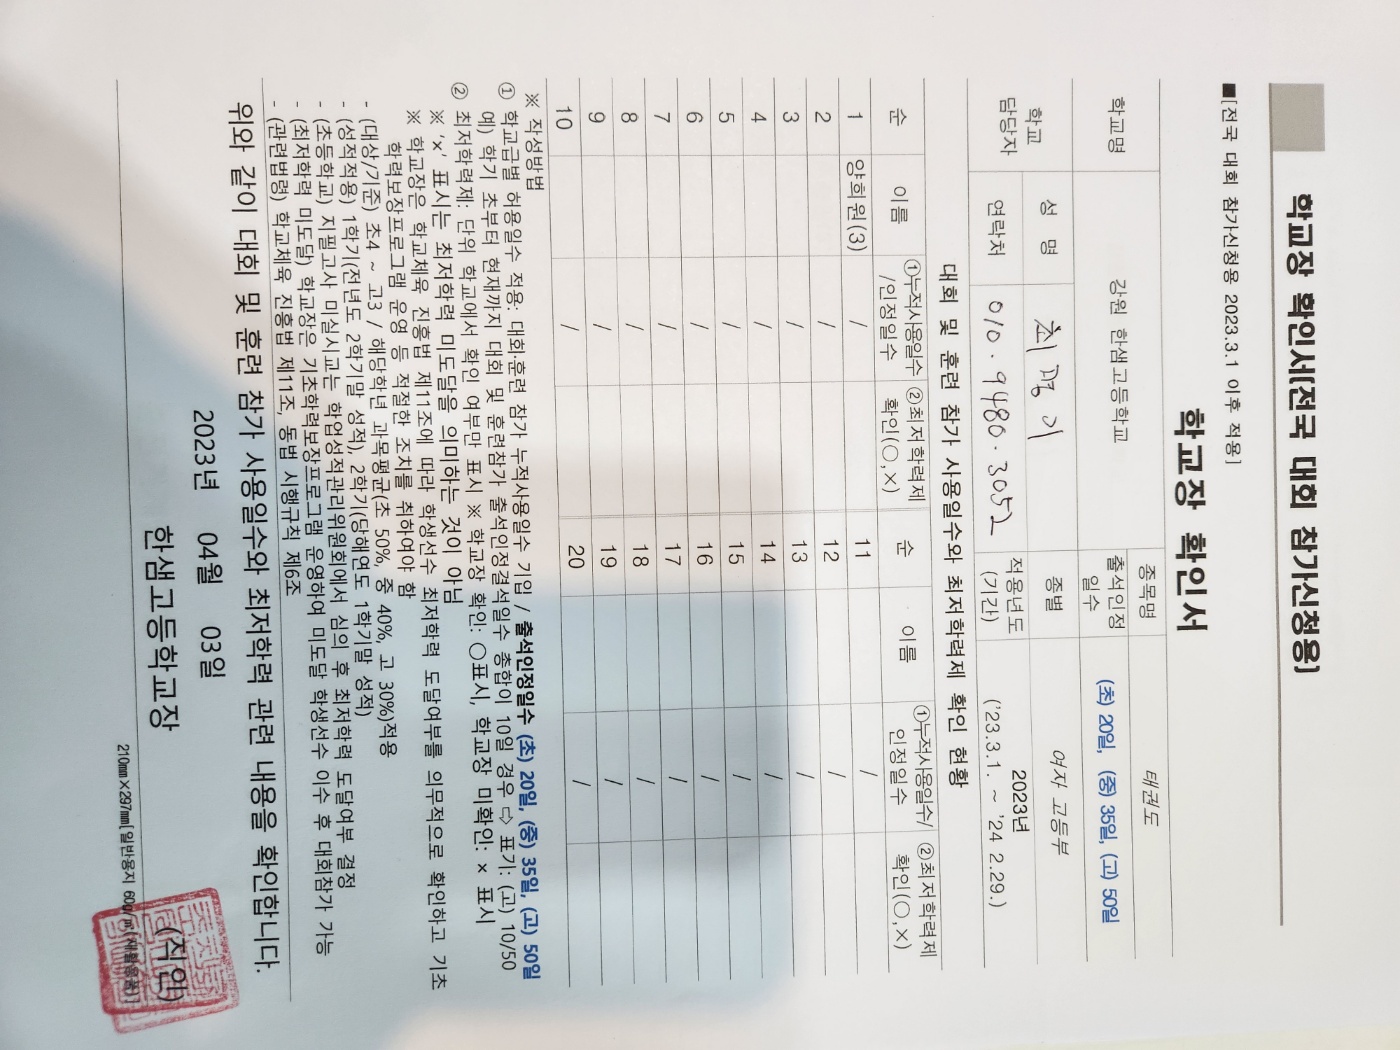 학교장 확인서[전국 대회 참가신청용]
■[전국 대회 참가신청용 2023.3.1 이후 적용]
학교장 확인서
학교명 강원 한샘고등학교 종목명 태권도
출석인정일수 (초) 20일, (중) 35일, (고) 50일
학교 담당자 성 명 종별 여자 고등부
연락처 010 · 9480 · 3052 적용년도 (기간) 2023년 ('23.3.1. ~ '24 2.29.)
대회 및 훈련 참가 사용일수와 최저학력제 확인 현황
순 이름 ①누적사용일수/인정일수 ②최저학력제 확인(○,×) 순 이름 ①누적사용일수/인정일수 ②최저학력제 확인(○,×)
1 양희원(3) / 11 /
2 / 12 /
3 / 13 /
4 / 14 /
5 / 15 /
6 / 16 /
7 / 17 /
8 / 18 /
9 / 19 /
10 / 20 /
※ 작성방법
① 학교급별 허용일수 적용: 대회·훈련 참가 누적사용일수 기입 / 출석인정일수 (초) 20일, (중) 35일, (고) 50일
예) 학기 초부터 현재까지 대회 및 훈련참가 출석인정결석일수 총합이 10일 경우 ⇨ 표기: (고) 10/50
② 최저학력제: 단위 학교에서 확인 여부만 표시 ※ 학교장 확인: ○표시, 학교장 미확인: × 표시
※ '×' 표시는 최저학력 미도달을 의미하는 것이 아님
※ 학교장은 학교체육 진흥법 제11조에 따라 학생선수 최저학력 도달여부를 의무적으로 확인하고 기초
학력보장프로그램 운영 등 적절한 조치를 취하여야 함
- (대상/기준) 초4 ~ 고3 / 해당학년 과목평균(초 50%, 중 40%, 고 30%)적용
- (성적적용) 1학기(전년도 2학기말 성적), 2학기(당해연도 1학기말 성적)
- (초등학교) 지필고사 미실시교는 학업성적관리위원회에서 심의 후 최저학력 도달여부 결정
- (최저학력 미도달) 학교장은 기초학력보장프로그램 운영하여 미도달 학생선수 이수 후 대회참가 가능
- (관련법령) 학교체육 진흥법 제11조, 동법 시행규칙 제6조
위와 같이 대회 및 훈련 참가 사용일수와 최저학력 관련 내용을 확인합니다.
2023년 04월 03일
한샘고등학교장 (직인)
210㎜×297㎜[일반용지 60g/㎡(재활용품)]